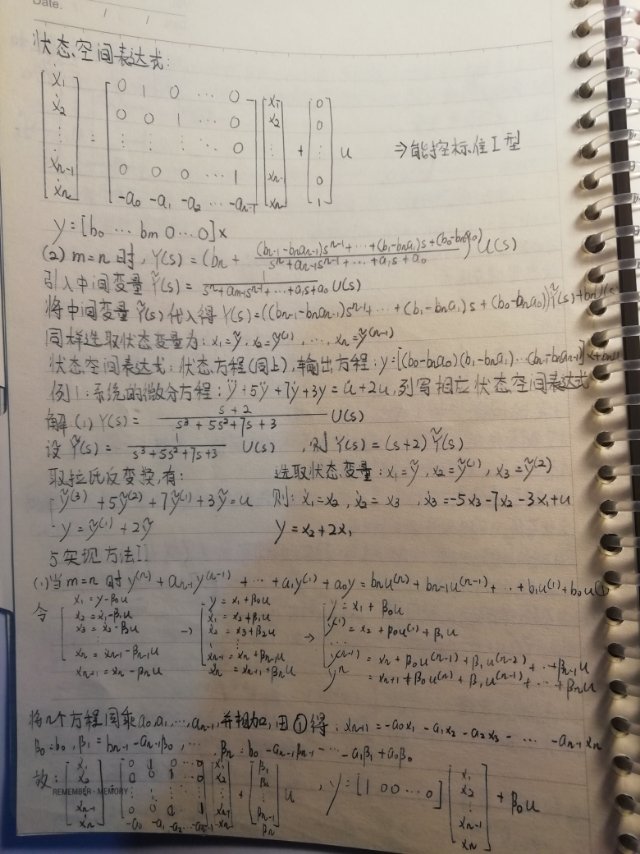 Date. / /
状态空间表达式:
[ẋ₁ ẋ₂ ⋮ ẋₙ₋₁ ẋₙ] = [0 1 0 ⋯ 0; 0 0 1 ⋯ 0; ⋮ ⋮ ⋮ ⋯ 0; 0 0 0 ⋯ 1; -a₀ -a₁ -a₂ ⋯ -aₙ₋₁] [x₁ x₂ ⋮ xₙ₋₁ xₙ] + [0 0 ⋮ 0 1] u ⇒能控标准I型
y=[b₀ ⋯ bm 0 ⋯ 0]x
(2) m=n 时, Y(s) = (bn + ((bn-1-bnan-1)sⁿ⁻¹+⋯+(b₁-bna₁)s+(b₀-bna₀))/(sⁿ+an-1sⁿ⁻¹+⋯+a₁s+a₀)) U(s)
引入中间变量 Ỹ(s) = 1/(sⁿ+an-1sⁿ⁻¹+⋯+a₁s+a₀) U(s)
将中间变量Ỹ(s)代入得 Y(s)=((bn-1-bnan-1)sⁿ⁻¹+⋯+(b₁-bna₁)s+(b₀-bna₀))Ỹ(s)+bnU(s)
同样选取状态变量为: x₁=ỹ, x₂=ỹ⁽¹⁾, ⋯, xn=ỹ⁽ⁿ⁻¹⁾
状态空间表达式: 状态方程(同上), 输出方程: y=[(b₀-bna₀)(b₁-bna₁)⋯(bn-1-bnan-1)]x+bnu
例1:系统的微分方程: y⃛+5ÿ+7ẏ+3y=u̇+2u, 列写相应状态空间表达式
解(1) Y(s)= (s+2)/(s³+5s²+7s+3) U(s)
设Ỹ(s)= 1/(s³+5s²+7s+3) U(s) , 则Y(s)=(s+2)Ỹ(s)
取拉氏反变换,有: 选取状态变量: x₁=ỹ, x₂=ỹ⁽¹⁾, x₃=ỹ⁽²⁾
ỹ⁽³⁾+5ỹ⁽²⁾+7ỹ⁽¹⁾+3ỹ=u 则: ẋ₁=x₂, ẋ₂=x₃, ẋ₃=-5x₃-7x₂-3x₁+u
y=ỹ⁽¹⁾+2ỹ y=x₂+2x₁
5 实现方法II
(1)当m=n时 y⁽ⁿ⁾+an-1y⁽ⁿ⁻¹⁾+⋯+a₁y⁽¹⁾+a₀y=bnu⁽ⁿ⁾+bn-1u⁽ⁿ⁻¹⁾+⋯+b₁u⁽¹⁾+b₀u ①
令 x₁=y-β₀u y=x₁+β₀u y=x₁+β₀u
x₂=ẋ₁-β₁u ẋ₁=x₂+β₁u y⁽¹⁾=x₂+β₀u⁽¹⁾+β₁u
x₃=ẋ₂-β₂u → ẋ₂=x₃+β₂u → ⋮
xn=ẋn-1-βn-1u ẋn-1=xn+βn-1u y⁽ⁿ⁻¹⁾=xn+β₀u⁽ⁿ⁻¹⁾+β₁u⁽ⁿ⁻²⁾+⋯+βn-1u
xn+1=ẋn-βnu ẋn=xn+1+βnu yⁿ=xn+1+β₀u⁽ⁿ⁾+β₁u⁽ⁿ⁻¹⁾+⋯+βnu
将n个方程同乘a₀,a₁,⋯,an-1,并相加,由①得: xn+1=-a₀x₁-a₁x₂-a₂x₃-⋯-an-1xn
β₀=bn, β₁=bn-1-an-1β₀, ⋯, βn=b₀-an-1βn-1-⋯-a₁β₁+a₀β₀
故: [ẋ₁ ẋ₂ ⋮ ẋn-1 ẋn] = [0 1 0 ⋯ 0; 0 0 1 ⋯ 0; ⋮; 0 0 0 1; -a₀ -a₁ -a₂ ⋯ -an-1] [x₁ x₂ ⋮ xn-1 xn] + [β₁ β₂ ⋮ βn-1 βn] u , y=[1 0 0 ⋯ 0] [x₁ x₂ ⋮ xn-1 xn] + β₀u
REMEMBER · MEMORY